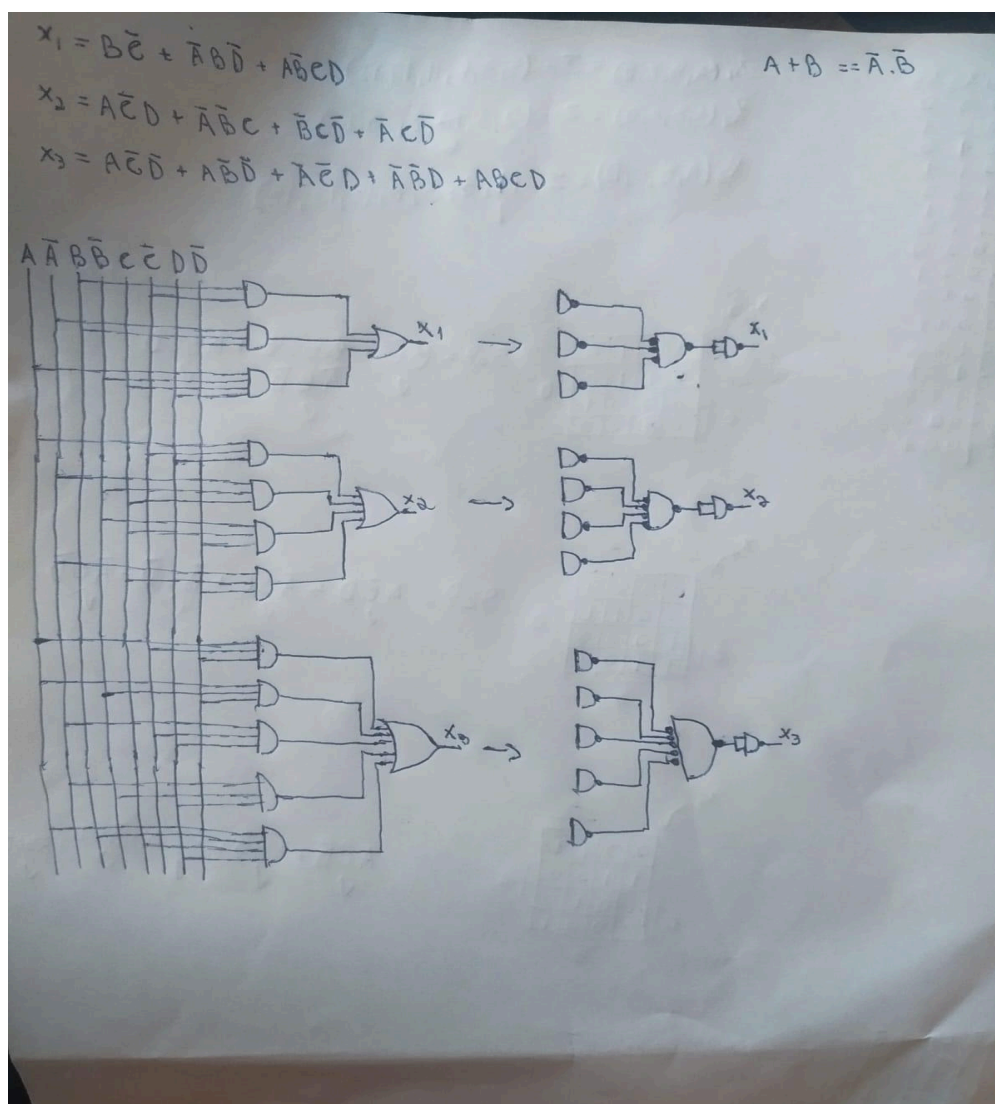 x₁ = BC̄ + ĀBD̄ + AB̄CD
A+B == Ā.B̄
x₂ = AC̄D + ĀB̄C + B̄CD̄ + ĀCD̄
x₃ = AC̄D̄ + AB̄D̄ + ĀC̄D + ĀB̄D + ABCD
A Ā B B̄ C C̄ D D̄
x₁ → x₁
x₂ → x₂
x₃ → x₃